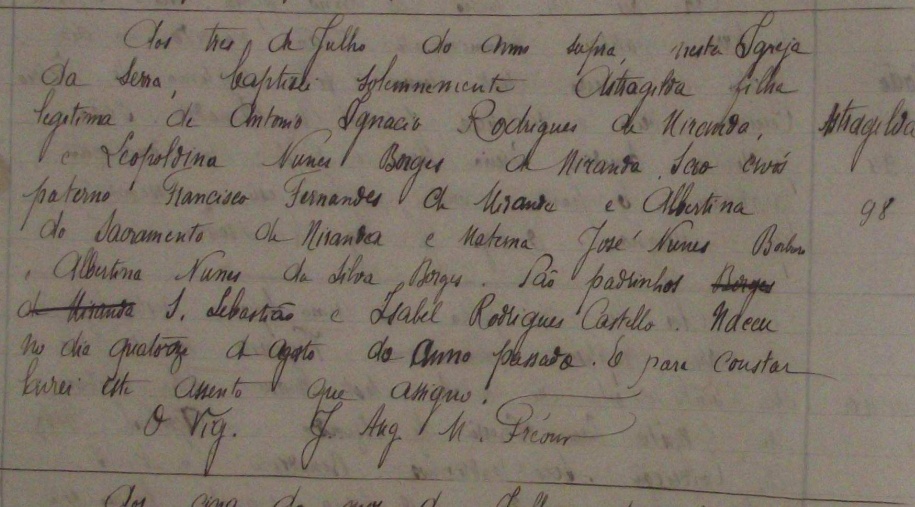 Aos tres de Julho do anno supra, nesta Igreja
da Serra, baptisei solemnemente Astragilda filha
legitima de Antonio Ignacio Rodrigues de Miranda,
e Leopoldina Nunes Borges de Miranda. Sao avós
paterno Francisco Fernandes de Miranda e Albertina
do Sacramento de Miranda e Materna José Nunes
e Albertina Nunes da Silva Borges. São padrinhos Borges
de Miranda S. Sebastião e Isabel Rodrigues Castello. Nasceu
no dia quatorze de agosto do anno passado. E para constar
lavrei este assento que assigno.
O Vig. J. Aug. M.
Astragilda
98
Aos do de